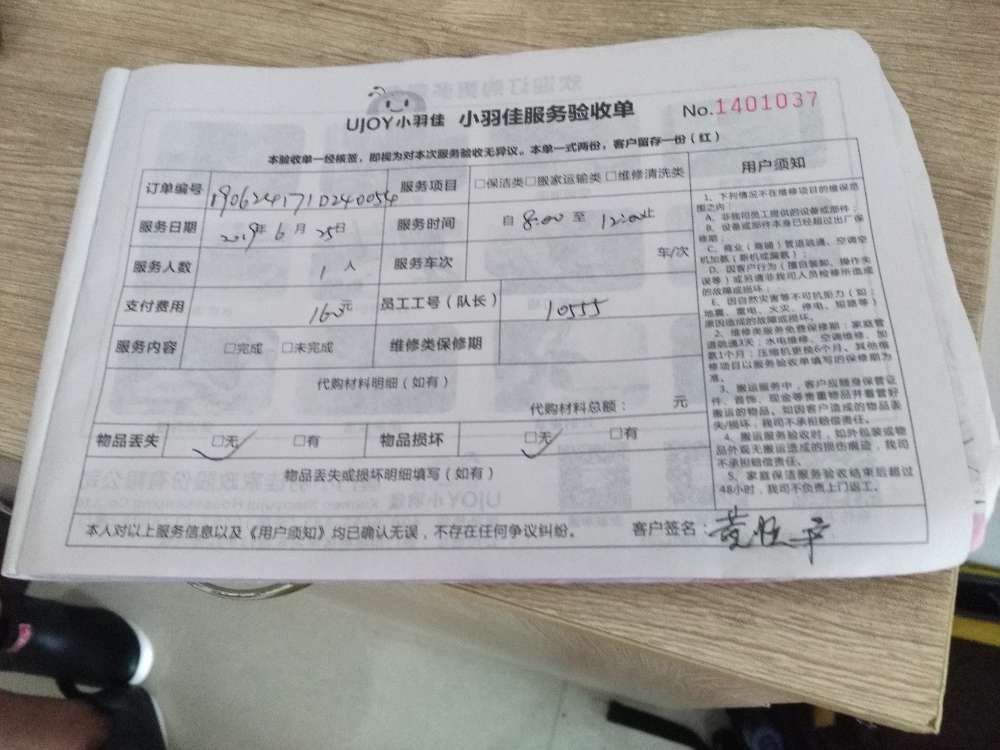 UJOY小羽佳 小羽佳服务验收单 No.1401037
本验收单一经核签，即视为对本次服务验收无异议。本单一式两份，客户留存一份（红）
订单编号 1906241710240054 服务项目 □保洁类□搬家运输类□维修清洗类
服务日期 2019年6月25日 服务时间 自 8:00 至 12:00
服务人数 1人 服务车次 车/次
支付费用 160元 员工工号（队长） 10555
服务内容 □完成 □未完成 维修类保修期
代购材料明细（如有）
代购材料总额： 元
物品丢失 □无 □有 物品损坏 □无 □有
物品丢失或损坏明细填写（如有）
用户须知
1、下列情况不在维修项目的维保范
围之内：
A、非我司员工提供的设备或部件；
B、设备或部件本身已经超过出厂保
修期；
C、商业（商铺）管道疏通、空调空
机加氨（新机或漏氨）；
D、因客户行为（擅自装卸、操作失
误等）或另请非我司人员检修所造成
的故障或损坏；
E、因自然灾害等不可抗力（如：
地震、雷电、火灾、停电、短路等）
原因造成的故障或损坏。
2、维修类服务免费保修期：家庭管
道疏通3天；水电维修、空调维修、加
氨1个月；压缩机更换6个月。其他维
修项目以服务验收单填写的保修期为
准。
3、搬运服务中，客户应随身保管证
件、首饰、现金等贵重物品并看管好
搬运的物品。如因客户造成的物品丢
失/损坏，我司不承担赔偿责任。
4、搬运服务验收时，如外包装或物
品外观无搬运造成的损伤痕迹，我司
不承担赔偿责任。
5、家庭保洁服务验收结束后超过
48小时，我司不负责上门返工。
本人对以上服务信息以及《用户须知》均已确认无误，不存在任何争议纠纷。 客户签名：